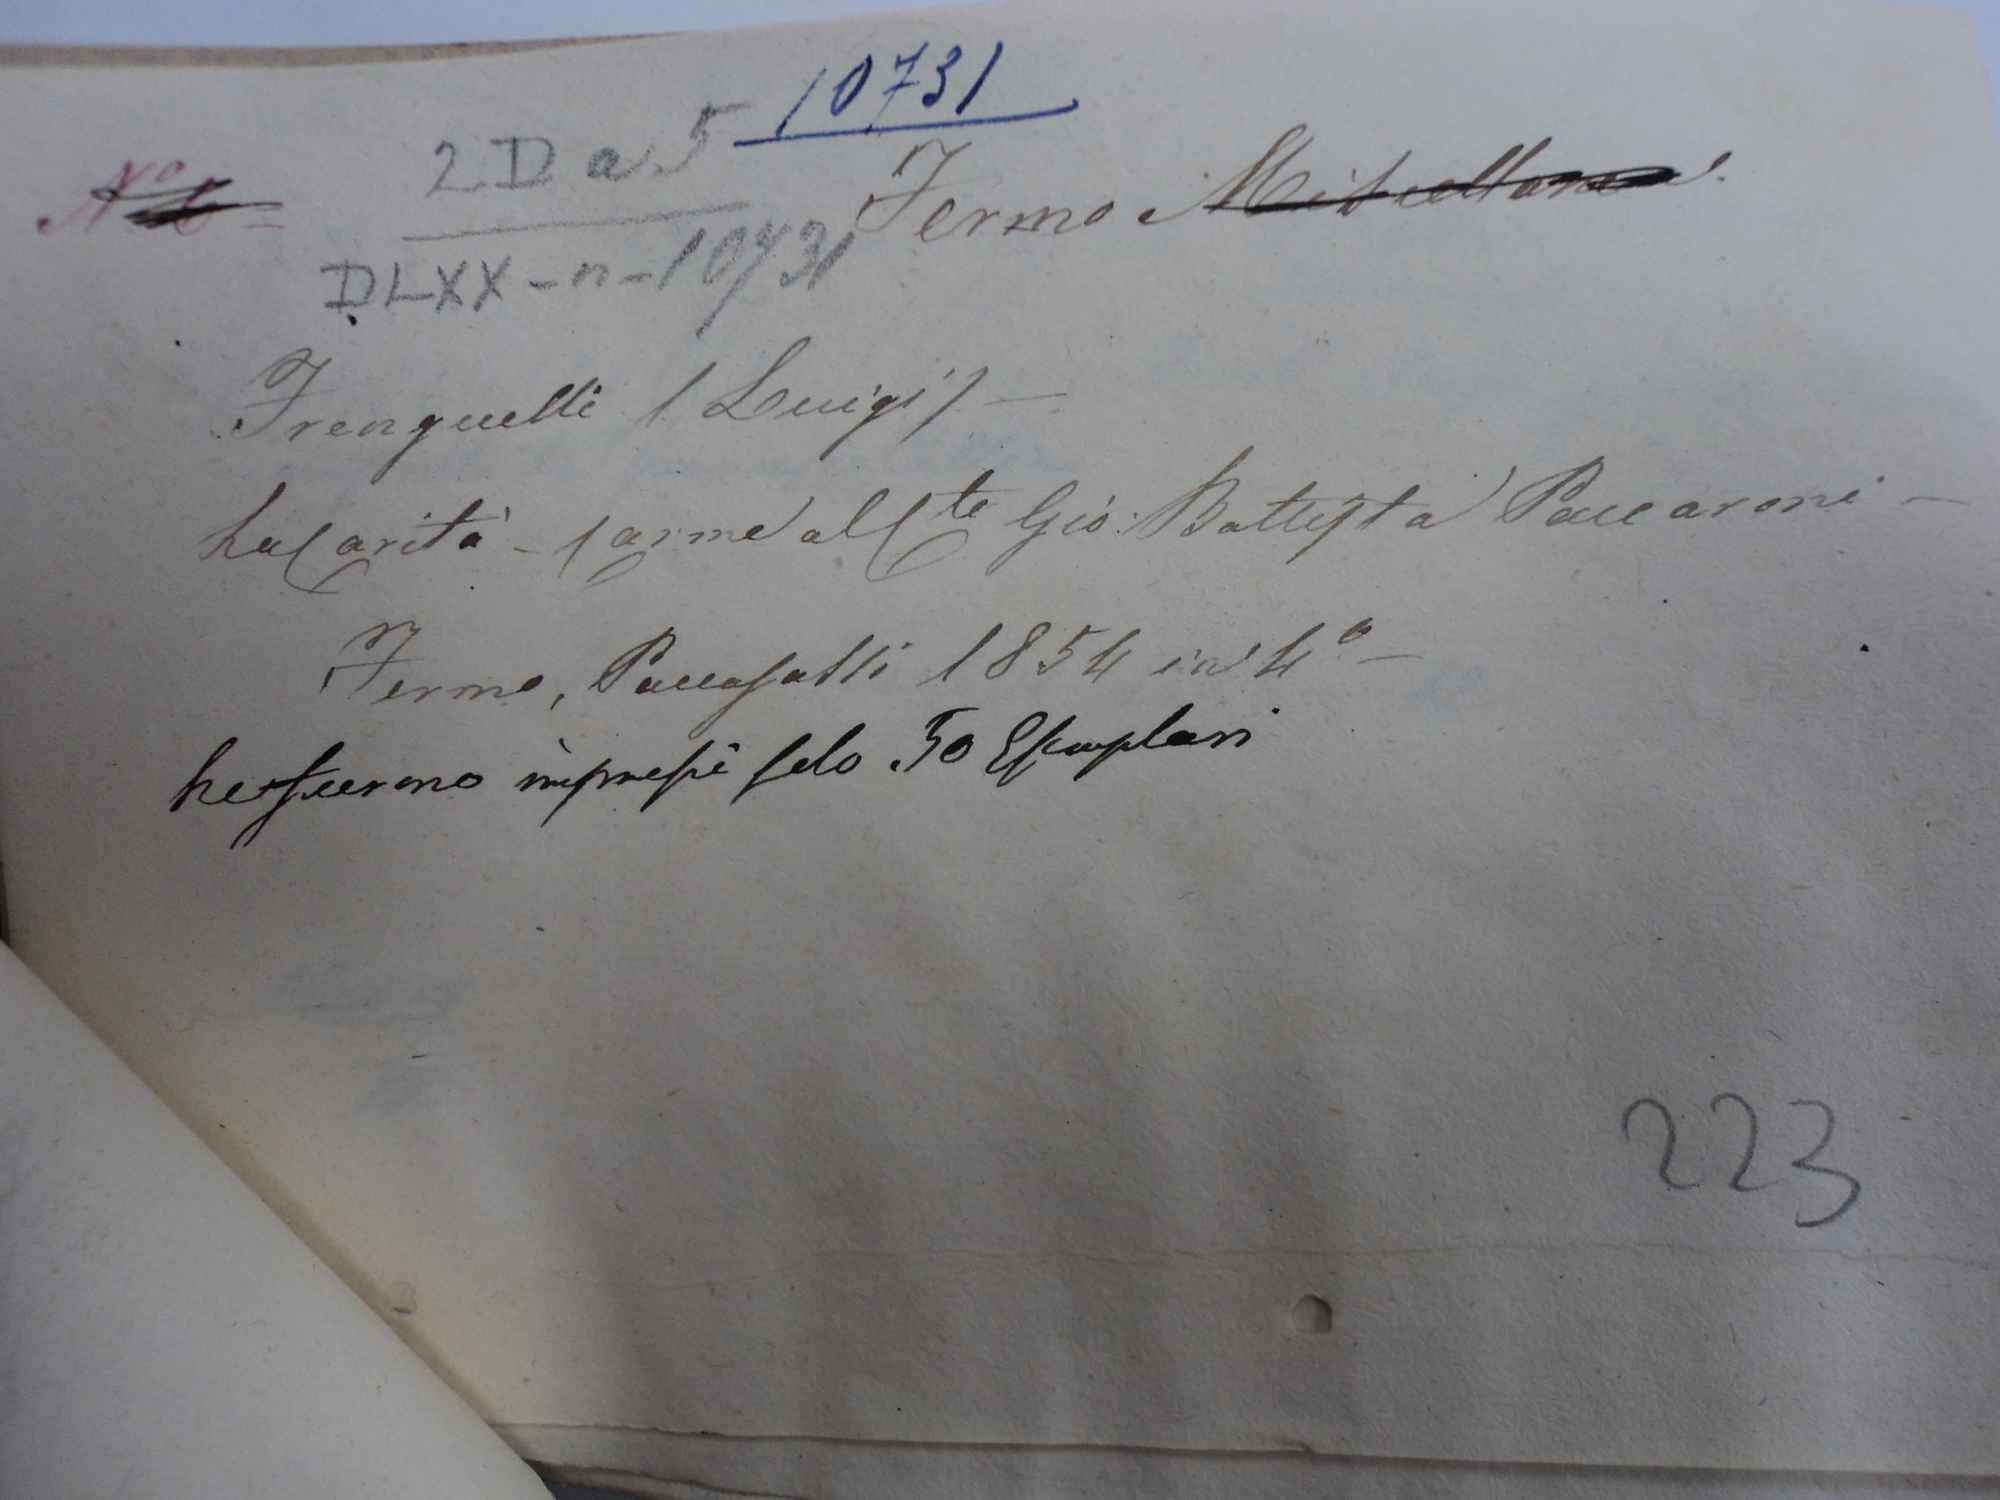 10731
N°
2 D a 5
Fermo Miscellanea
DLXX - n - 10731
Frenguelli (Luigi) -
La Carità - Carme al Cte Gio: Battista Paccaroni -
Fermo, Paccasassi 1854 in 4° -
Ne furono impressi solo 50 Esemplari
223